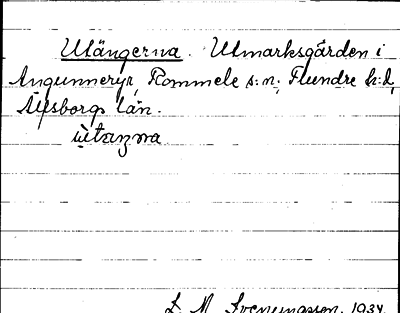 Utängerna. Utmarksgården i
Angunneryr, Rommele s:n; Flundre h:d,
Älfsborgs län.
L. M. Svenungsson. 1934.